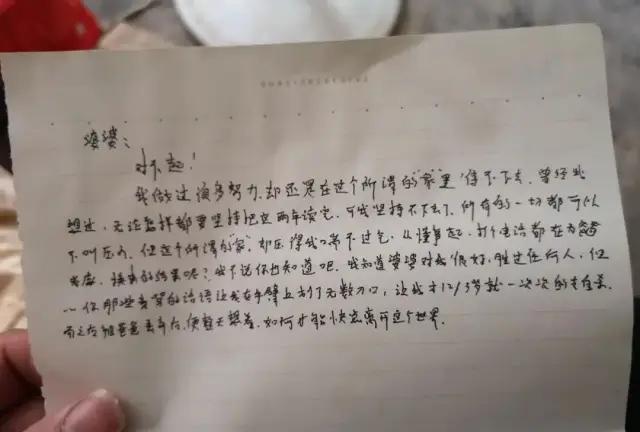 婆婆:
对不起!
我做过很多努力,却还是在这个所谓的"家"里待不下去,曾经也
想过,无论怎样都要坚持把这两年读完,可我坚持不下去了,所有的一切都可以
不叫压力,但这个所谓的"家"却压得我喘不过气,从懂事起,打个电话都在为
考虑,换来的结果呢?我不说你也知道吧,我知道婆婆对我很好,胜过任何人,但
你那些责骂的话语让我在手臂上划了无数刀口,让我才12/3岁就一次次的去自杀
而之后被爸爸丢弃后,便整天想着,如何才能快点离开这个世界.